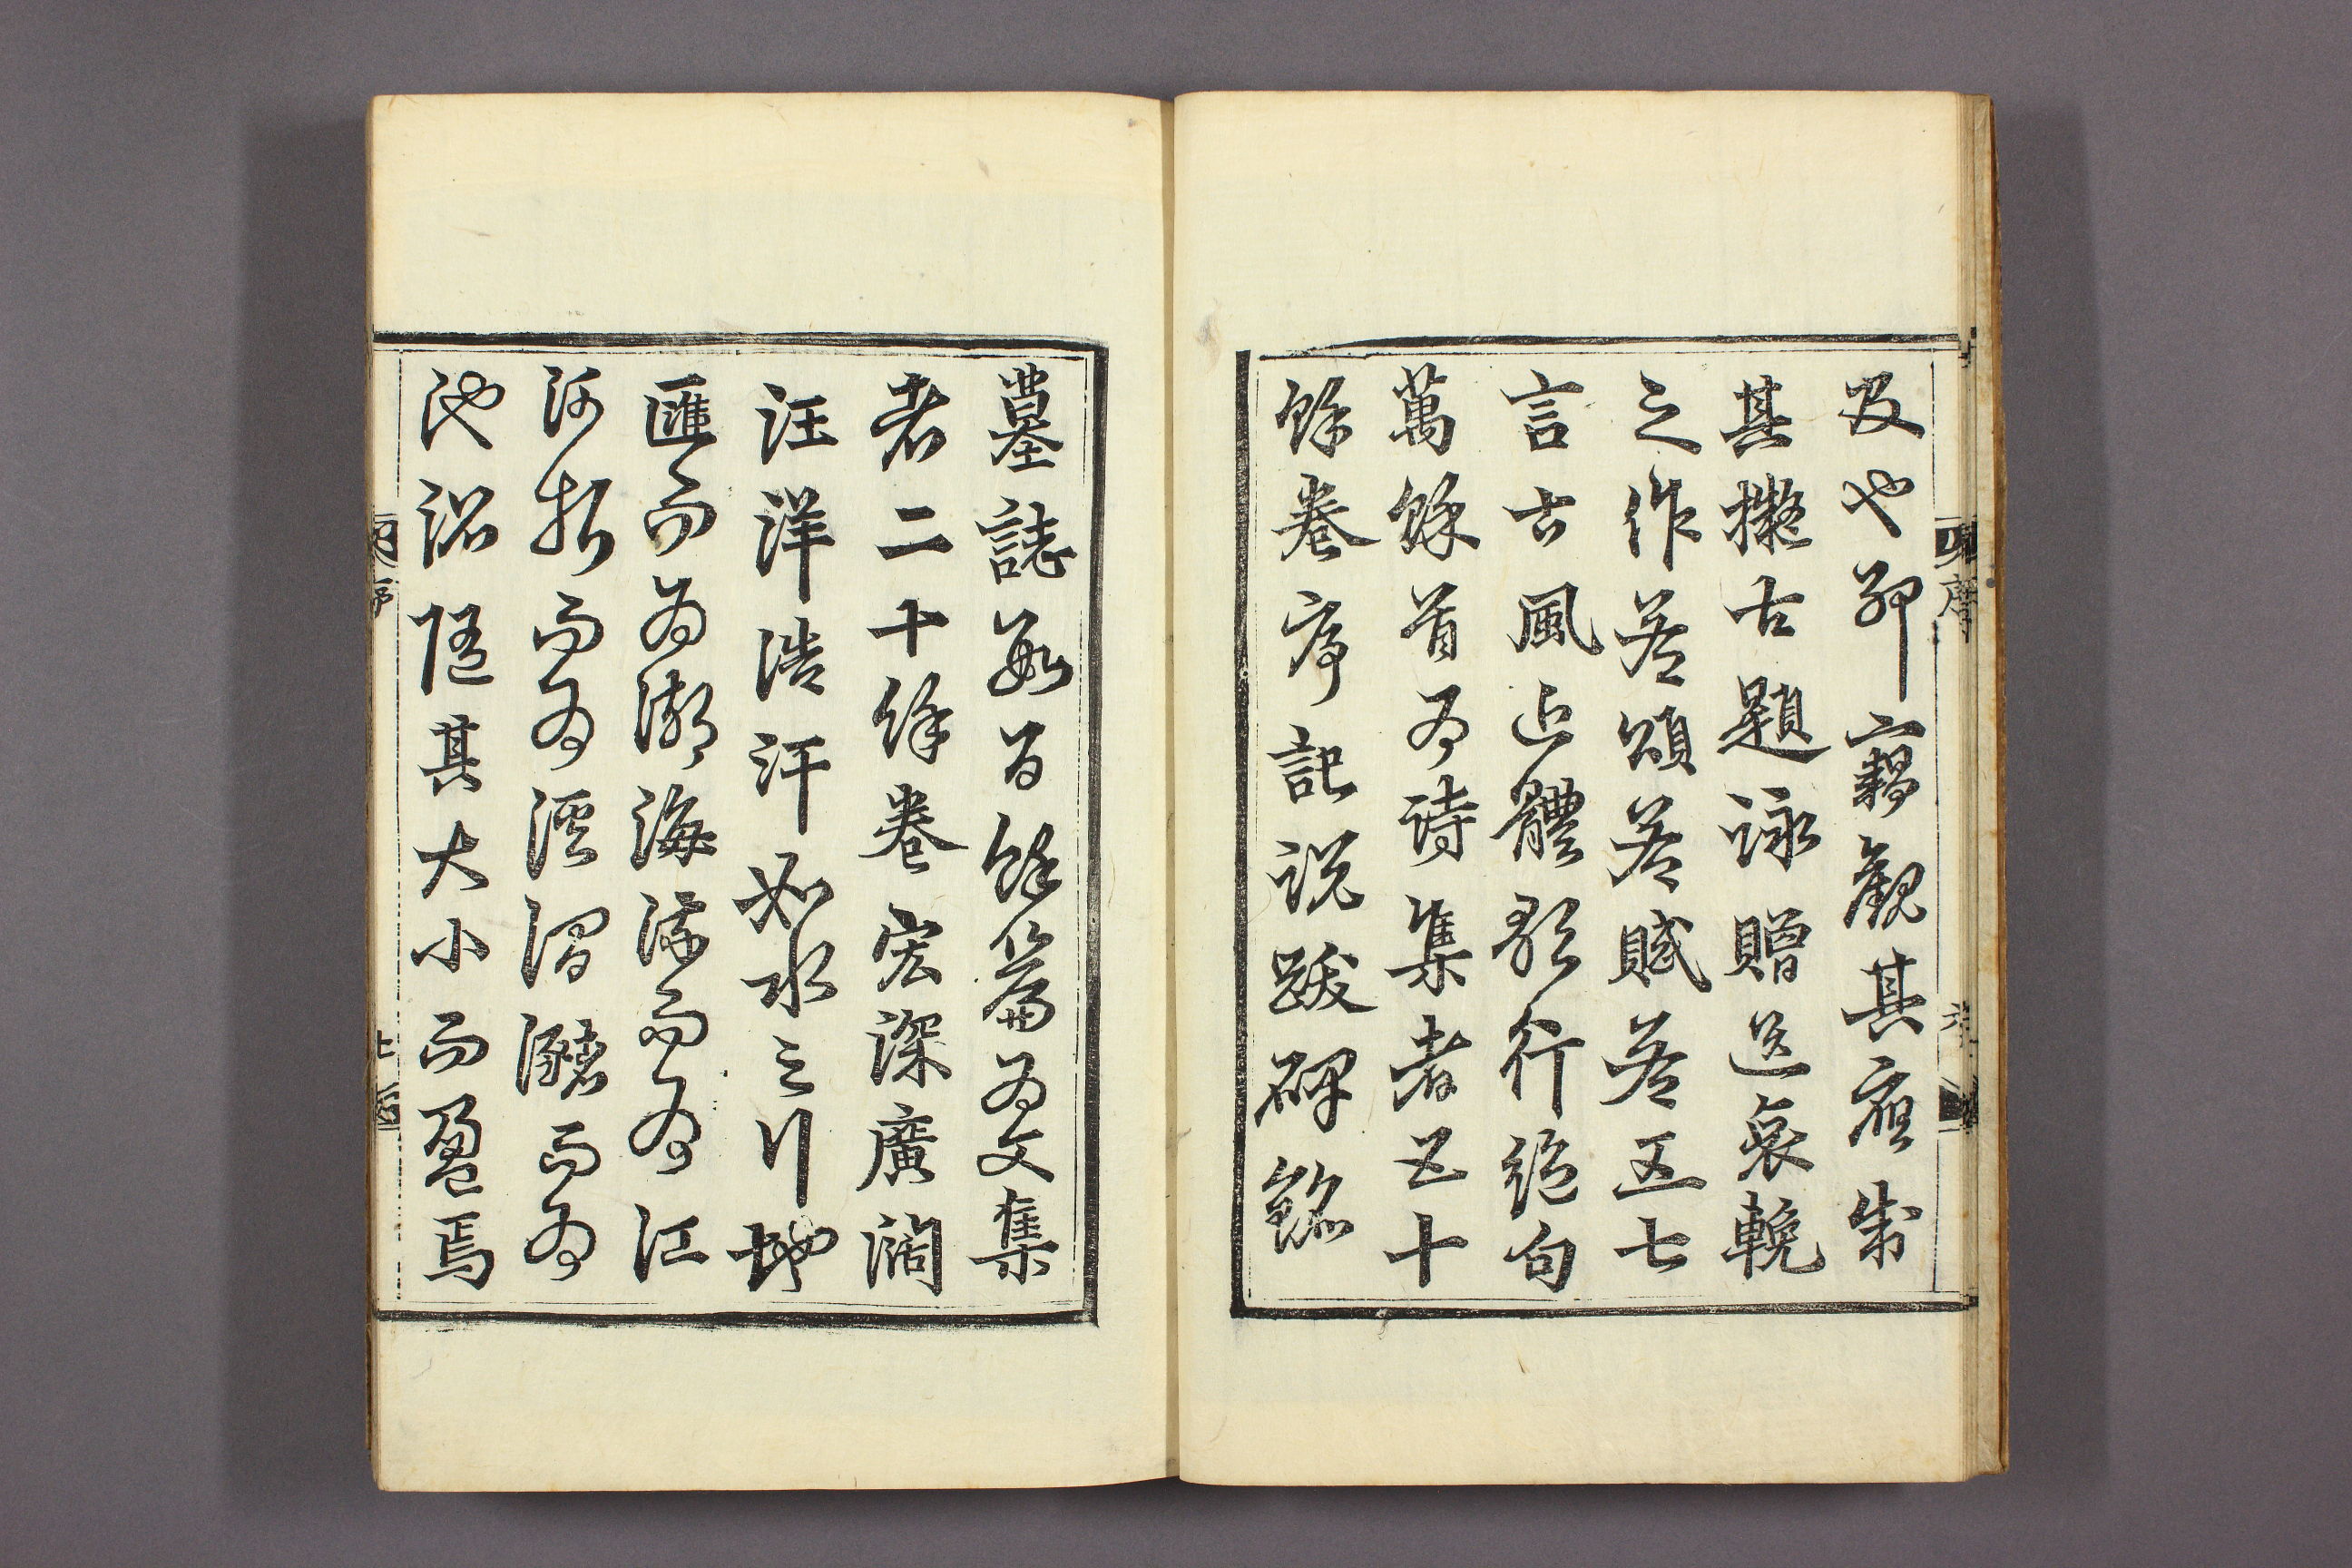 及也邵寶竊觀其應制
其擬古題詠贈送哀輓
之作若頌若賦若五七
言古風近體歌行絕句
萬餘首為詩集者五十
餘卷序記說跋碑銘
墓誌數百餘篇為文集
者二十餘卷宏深廣闊
汪洋浩汗如水之行地
匯而為湖海流而為江
河折而為溪澗瀦而為
池沼隨其大小而盈焉